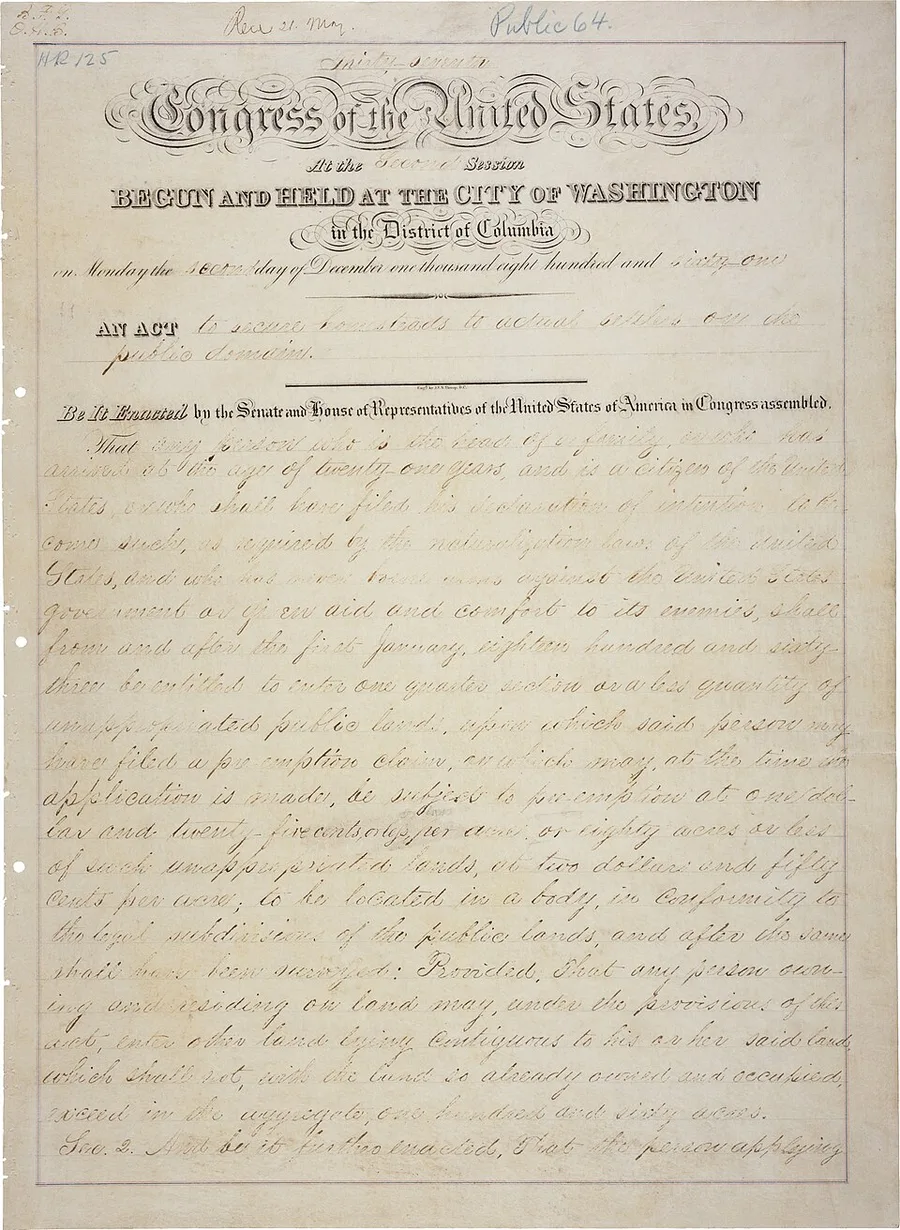 Rec 21. May.
Public 64.
HR 125
Thirty-seventh
Congress of the United States,
At the Second Session
BEGUN AND HELD AT THE CITY OF WASHINGTON
in the District of Columbia
on Monday the second day of December one thousand eight hundred and sixty-one
AN ACT to secure homesteads to actual settlers on the
public domain.
Be It Enacted by the Senate and House of Representatives of the United States of America in Congress assembled,
That any person who is the head of a family, or who has
arrived at the age of twenty-one years, and is a citizen of the United
States, or who shall have filed his declaration of intention to be-
come such, as required by the naturalization laws of the United
States, and who has never borne arms against the United States
government or given aid and comfort to its enemies, shall
from and after the first January, eighteen hundred and sixty-
three be entitled to enter one quarter section or a less quantity of
unappropriated public lands, upon which said person may
have filed a pre-emption claim, or which may, at the time the
application is made, be subject to pre-emption at one dol-
lar and twenty-five cents, or less, per acre; or eighty acres or less
of such unappropriated lands, at two dollars and fifty
cents per acre; to be located in a body, in conformity to
the legal subdivisions of the public lands, and after the same
shall have been surveyed: Provided, That any person own-
ing and residing on land may, under the provisions of this
act, enter other land lying contiguous to his or her said land,
which shall not, with the land so already owned and occupied,
exceed in the aggregate one hundred and sixty acres.
Sec. 2. And be it further enacted, That the person applying